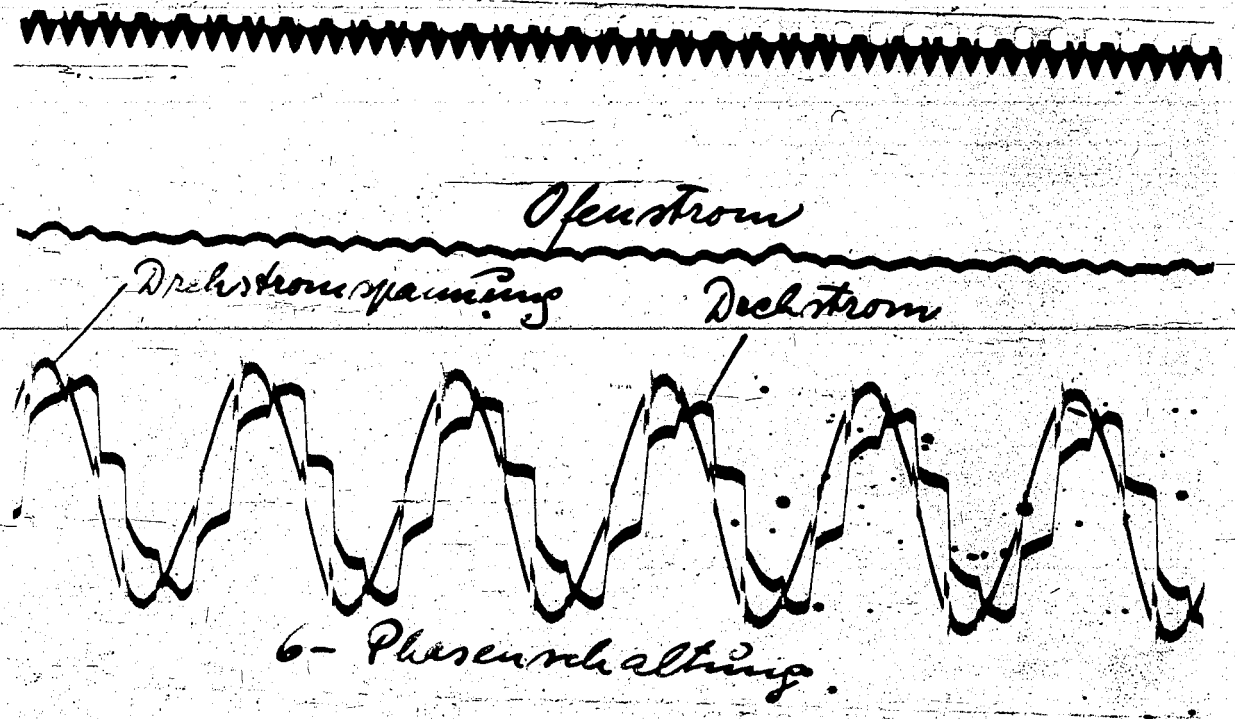 Ofenstrom
Drehstromspannung
Drehstrom
6- Phasenschaltung.